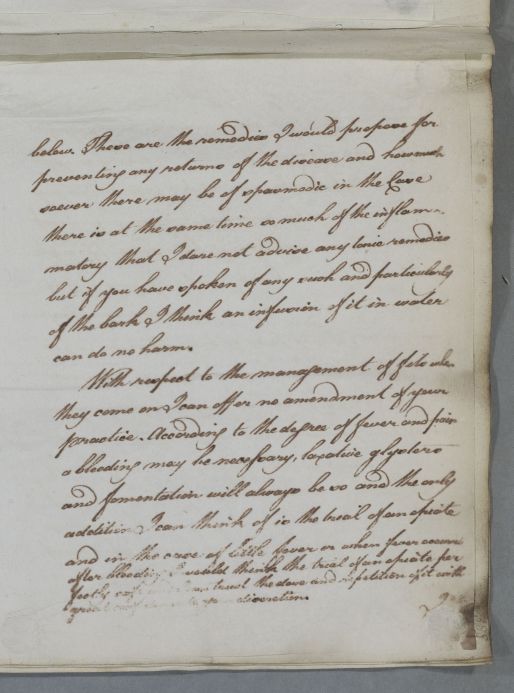 below. These are the remedies I would propose for
preventing any returns of the disease and how much
soever there may be of spasmodic in the Case
there is at the same time so much of the inflam-
matory that I dare not advise any tonic remedies
but if you have spoken of any such and particularly
of the bark I think an infusion of it in water
can do no harm.
With respect to the management of fits when
they come on I can offer no amendment of your
practice. According to the degree of fever and pain
a bleeding may be necessary, laxative glysters
and fomentation will always be so and the only
addition I can think of is the trial of an opiate
and in the case of little fever or when fever occurs
after bleeding I would think the trial of an opiate per
trust the dose and repetition of it with
your discretion.